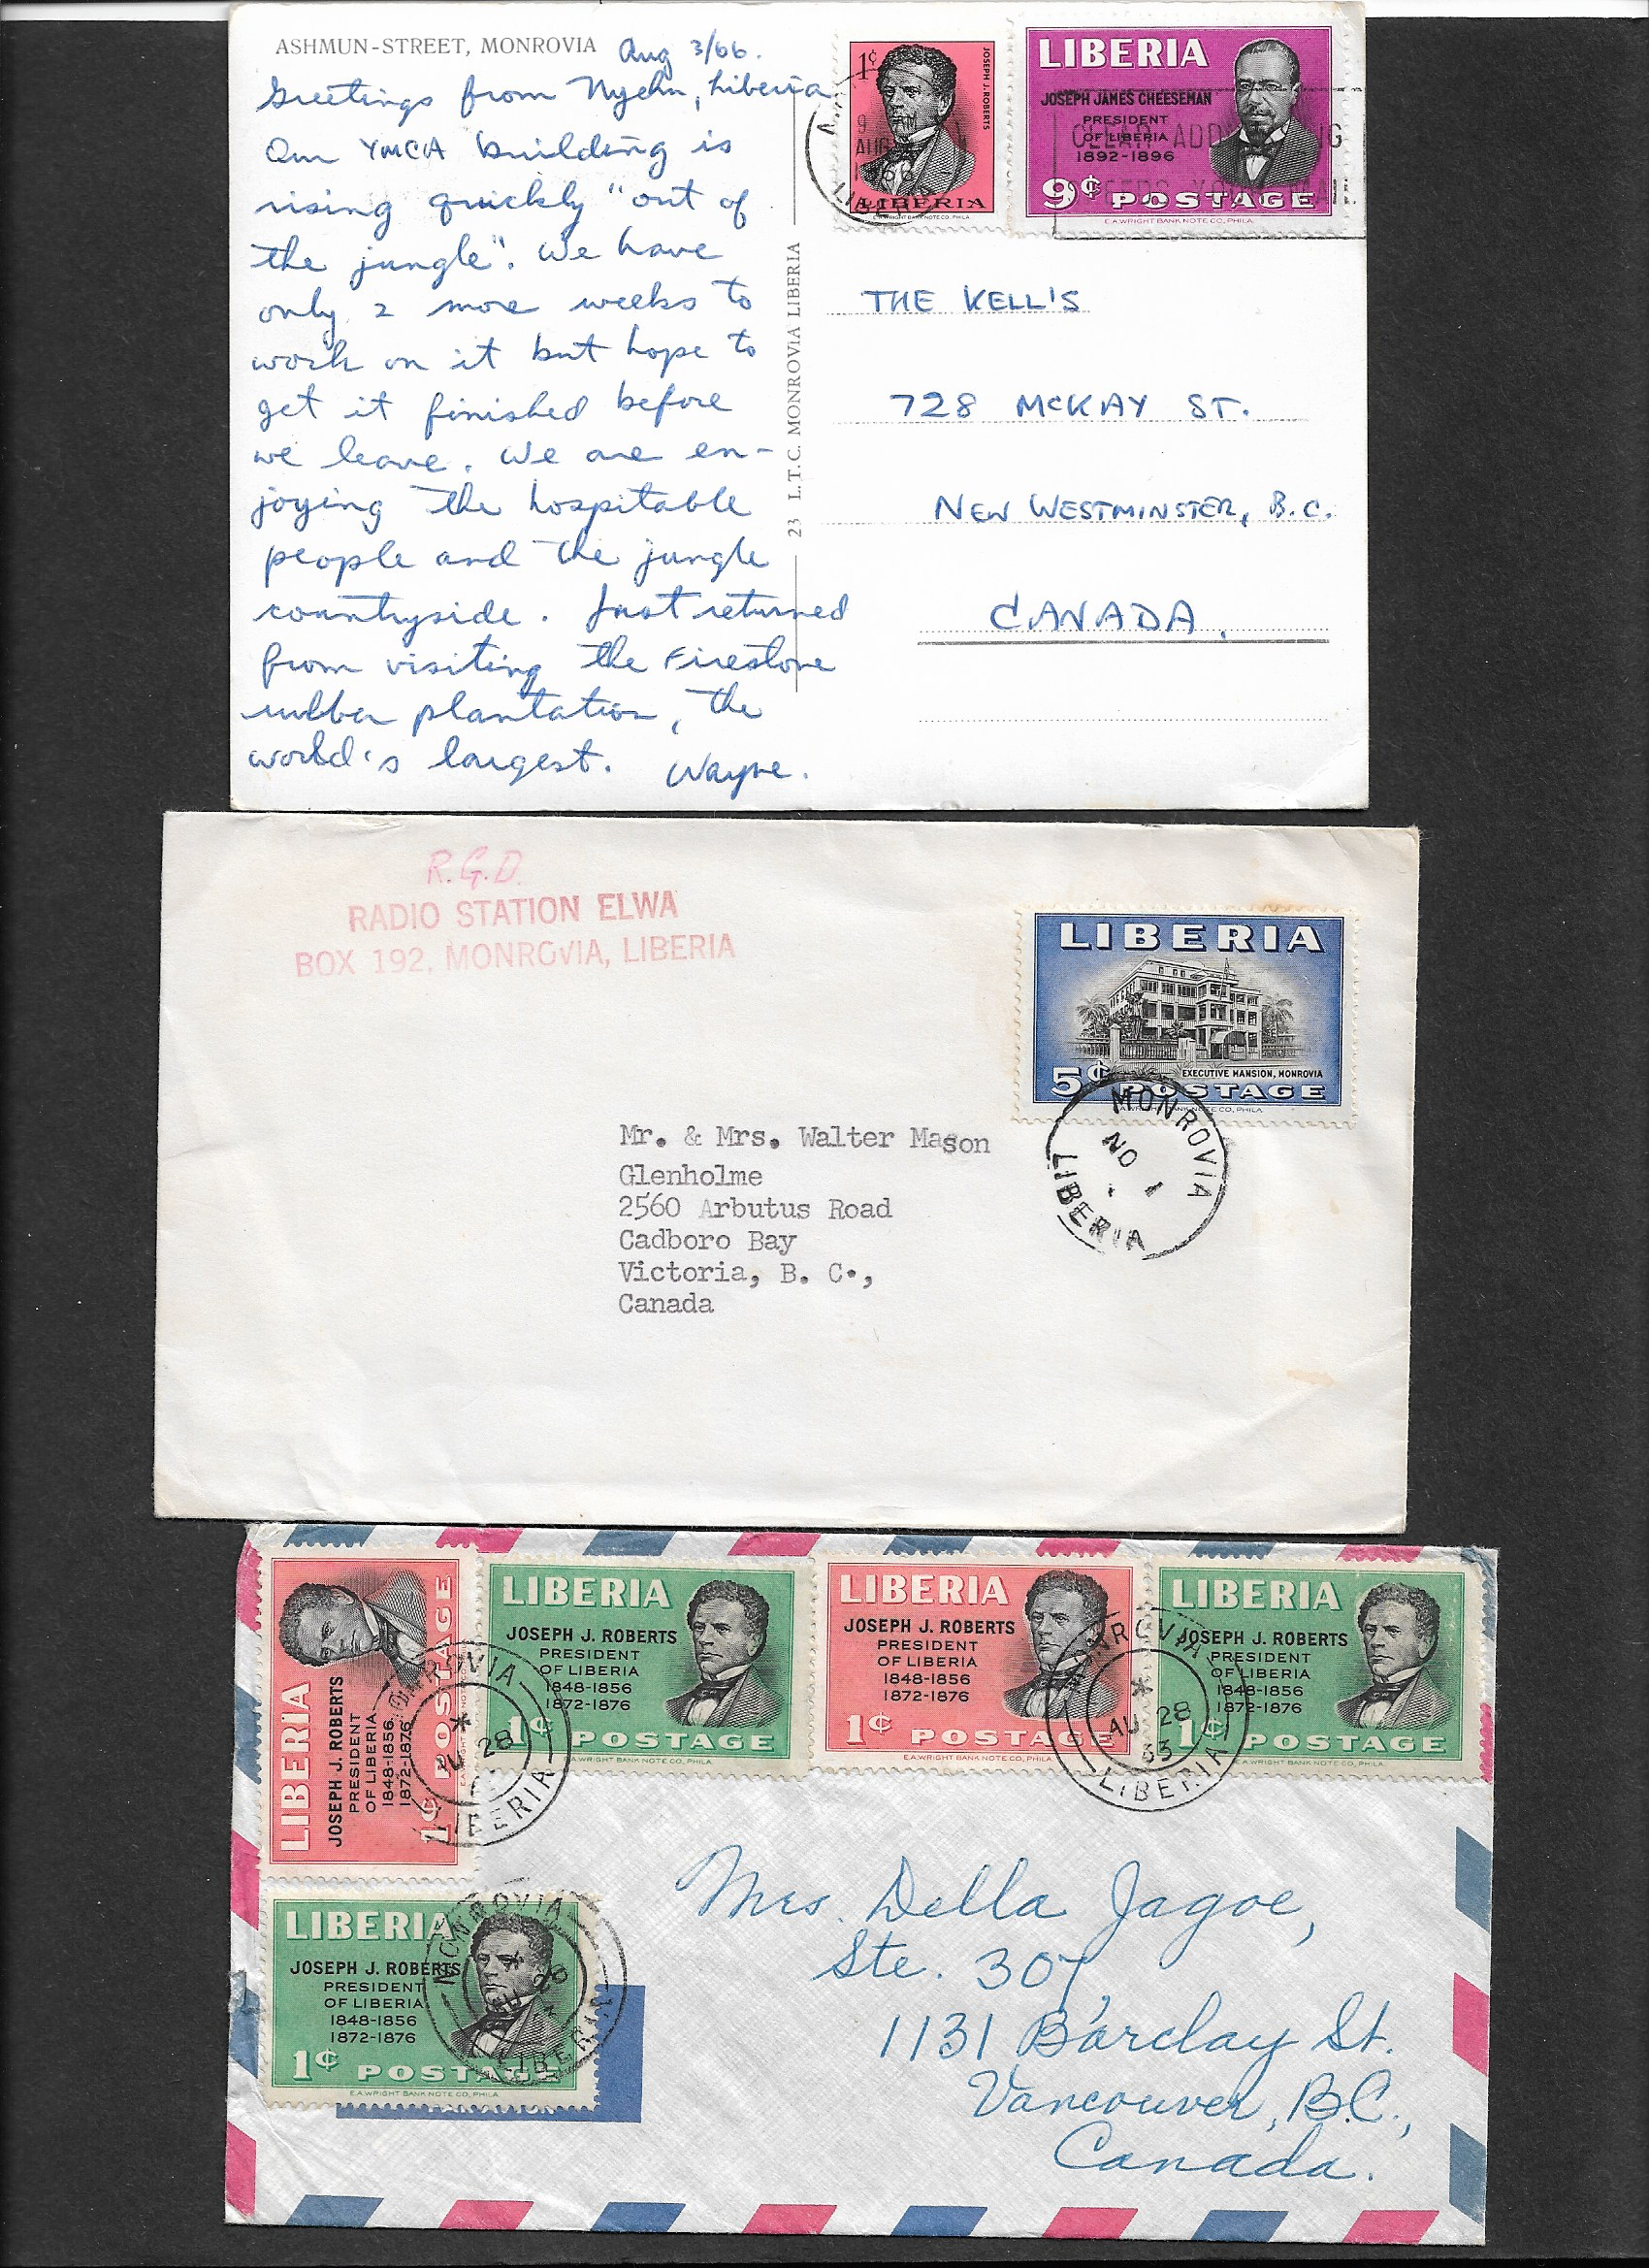 ASHMUN-STREET, MONROVIA Aug 3/66.
Greetings from Nyehn, Liberia
Our YMCA building is
rising quickly "out of
the jungle". We have
only 2 more weeks to
work on it but hope to
get it finished before
we leave. We are en-
joying the hospitable
people and the jungle
countryside. Just returned
from visiting the Firestone
rubber plantation, the
world's largest. Wayne.
23 L.T.C. MONROVIA LIBERIA
1¢
JOSEPH J. ROBERTS
LIBERIA
E.A.WRIGHT BANK NOTE CO., PHILA.
9 AM
AUG
1966
LIBERIA
JOSEPH JAMES CHEESEMAN
PRESIDENT
OF LIBERIA
1892-1896
9¢ POSTAGE
E.A.WRIGHT BANK NOTE CO., PHILA.
CLEAR ADDRESSING
SPEEDS YOUR MAIL
THE KELL'S
728 McKAY ST.
NEW WESTMINSTER, B.C.
CANADA.
R.G.D.
RADIO STATION ELWA
BOX 192, MONROVIA, LIBERIA
LIBERIA
EXECUTIVE MANSION, MONROVIA
5¢ POSTAGE
E.A.WRIGHT BANK NOTE CO., PHILA.
MONROVIA
NO 1
LIBERIA
Mr. & Mrs. Walter Mason
Glenholme
2560 Arbutus Road
Cadboro Bay
Victoria, B. C.,
Canada
LIBERIA
JOSEPH J. ROBERTS
PRESIDENT
OF LIBERIA
1848-1856
1872-1876
1¢ POSTAGE
LIBERIA
JOSEPH J. ROBERTS
PRESIDENT
OF LIBERIA
1848-1856
1872-1876
1¢ POSTAGE
E.A.WRIGHT BANK NOTE CO., PHILA.
LIBERIA
JOSEPH J. ROBERTS
PRESIDENT
OF LIBERIA
1848-1856
1872-1876
1¢ POSTAGE
E.A.WRIGHT BANK NOTE CO., PHILA.
LIBERIA
JOSEPH J. ROBERTS
PRESIDENT
OF LIBERIA
1848-1856
1872-1876
1¢ POSTAGE
E.A.WRIGHT BANK NOTE CO., PHILA.
MONROVIA
AU 28
LIBERIA
MONROVIA
AU 28
53
LIBERIA
LIBERIA
JOSEPH J. ROBERTS
PRESIDENT
OF LIBERIA
1848-1856
1872-1876
1¢ POSTAGE
E.A.WRIGHT BANK NOTE CO., PHILA.
MONROVIA
LIBERIA
PAR AVION
Mrs. Della Jagoe,
Ste. 307
1131 Barclay St.
Vancouver, B.C.,
Canada.